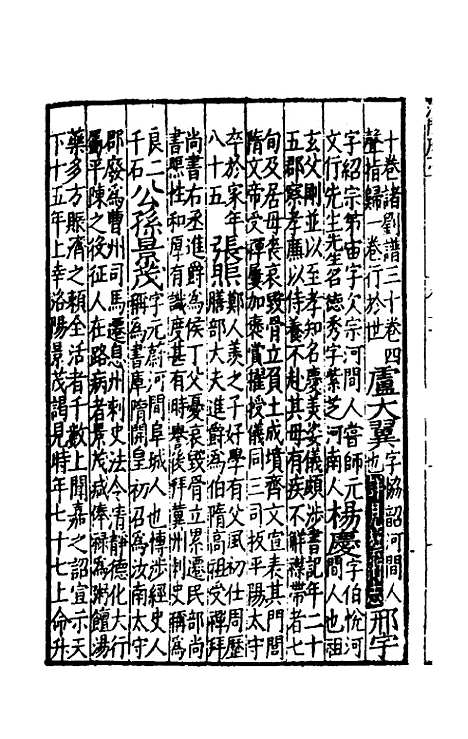 十卷諸劉譜三十卷四 盧大翼字協詔河間人
聲指歸一卷行於世 也 邢宇
字紹宗第宙字次宗河間人嘗師元
文行先生先生名德秀字紫芝河南人 楊慶字伯悅河間人也祖
玄父剛並以至孝知名慶美姿儀頗涉書記年二十
五郡察孝廉以侍養不赴其母有疾不解襟帶者七
旬及居母喪哀毀骨立負土成墳齊文宣表其門閭
隋文帝受禪屢加褒賞擢授儀同三司板平陽太守
卒於家年八十五 張煚鄭人羨之子好學有父風初仕周歷
膳部大夫進爵為伯隋高祖受禪拜
尚書右丞進爵為侯丁父憂哀毀骨立累遷民部尚
書煚性和厚有識度甚有時譽後拜冀州刺史稱為
良二千石 公孫景茂字元蔚河間阜城人也博涉經史人
稱為書庫隋開皇初召為汝南太守
郡廢為曹州司馬遷息州刺史法令清靜德化大行
屬平陳之役征人在路病者景茂減俸祿為粥饘湯
藥多方賑濟之賴全活者千數上聞嘉之詔宣示天
下十五年上幸洛陽景茂謁見時年七十七上命升